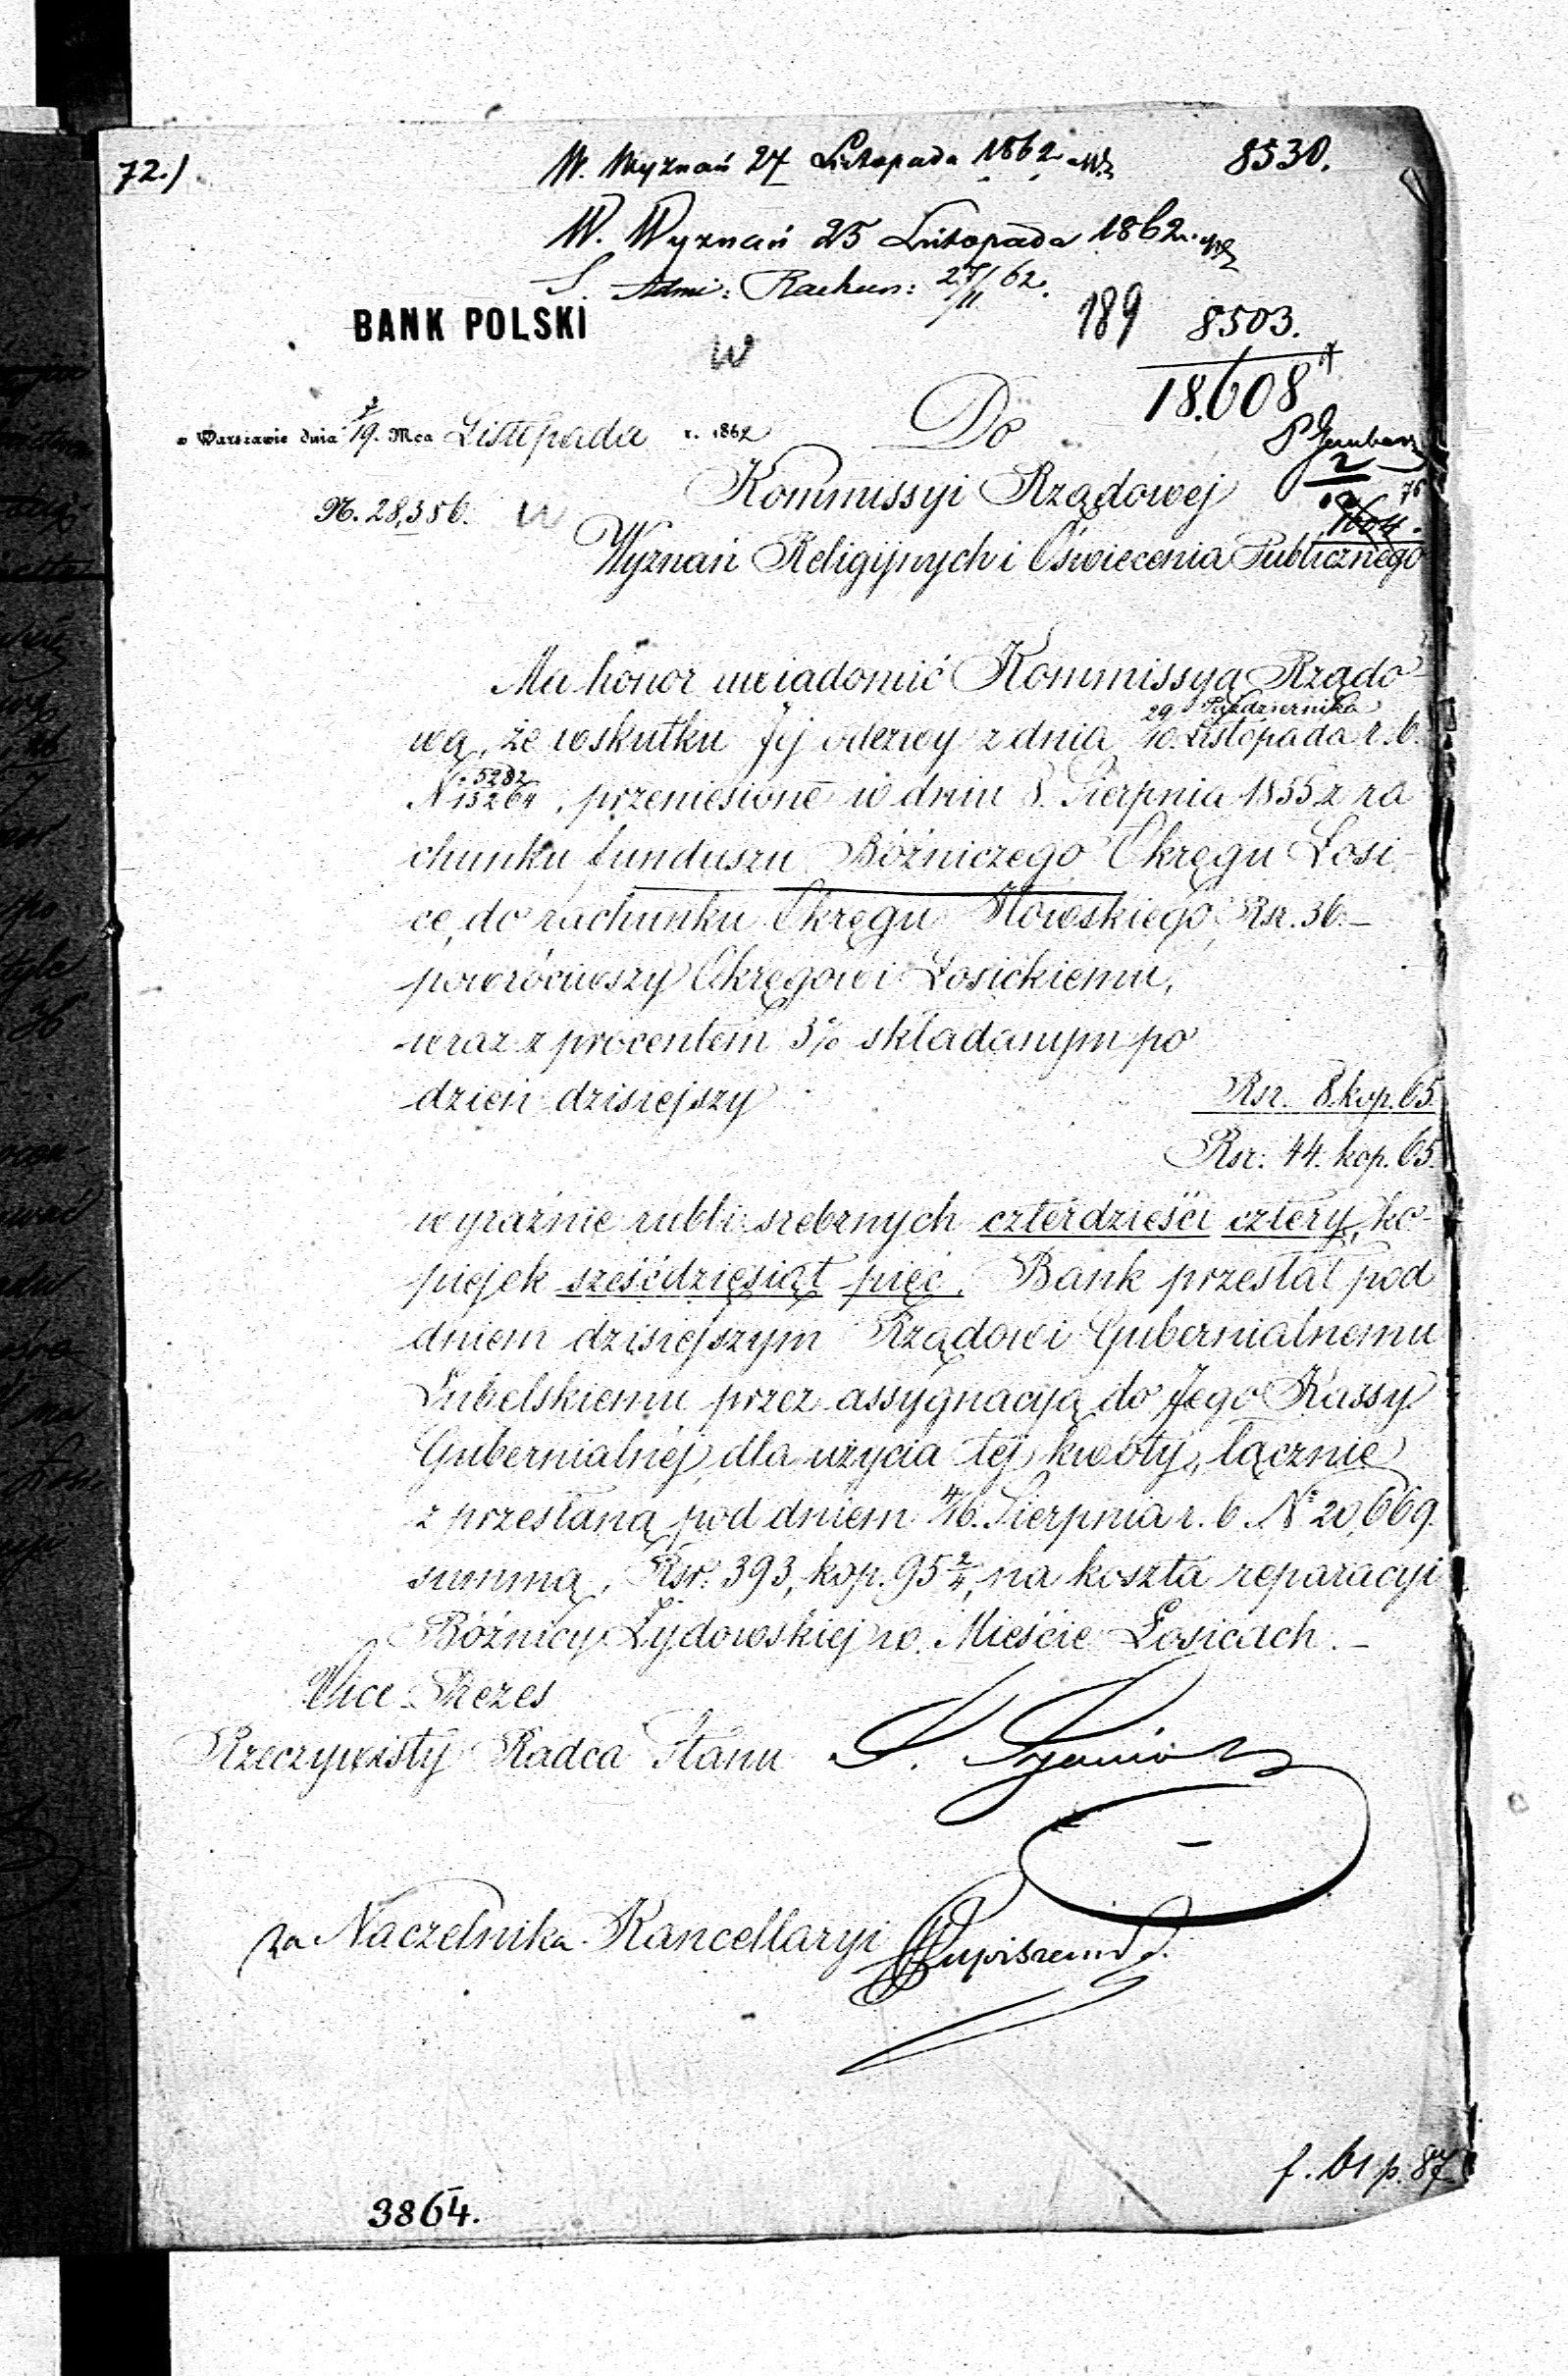 72.)
W. Wyznań 27 Listopada 1862
8530.
W. Wyznań 25 Listopada 1862.
S. Admi: Rachun: 27/11 62.
BANK POLSKI
189
8503.
W
18.608
Do
w Warszawie dnia 7/19. Mca Listopada r. 1862
Kommissyi Rządowej
2
N. 28,356.
Wyznań Religijnych i Oświecenia Publicznego
Ma honor uwiadomić Kommissyą Rządo-
wą, że wskutku Jej odezwy z dnia 29 Października / 10. Listopada r. b.
N 5282/15264, przeniesione w dniu 8. Sierpnia 1855 z ra
chunku funduszu Bóżniczego Okręgu Łosi-
ce, do rachunku Okręgu Rsr. 36.—
powróciwszy Okręgowi Łosickiemu,
wraz z procentem 3% składanym po
dzień dzisiejszy
Rsr. 8. kop. 65.
Rsr. 44. kop. 65.
wyraźnie rubli srebrnych czterdzieści cztery, ko-
piejek sześćdziesiąt pięć, Bank przesłał pod
dniem dzisiejszym Rządowi Gubernialnemu
Lubelskiemu przez assygnacyą do Jego Kassy
Gubernialnéj, dla użycia téj kwoty, łącznie
z przesłaną pod dniem 4/16. Sierpnia r. b. N° 20,669.
summą, Rsr. 393, kop. 95 2/4, na koszta reparacyi
Bóżnicy Żydowskiej w Mieście Łosicach.—
Vice Prezes
Rzeczywisty Radca Stanu
za Naczelnika Kancellaryi
f. 61 p. 87
3864.